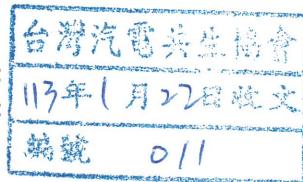 台灣汽電共生協會
113年1月22日收文
編號 011